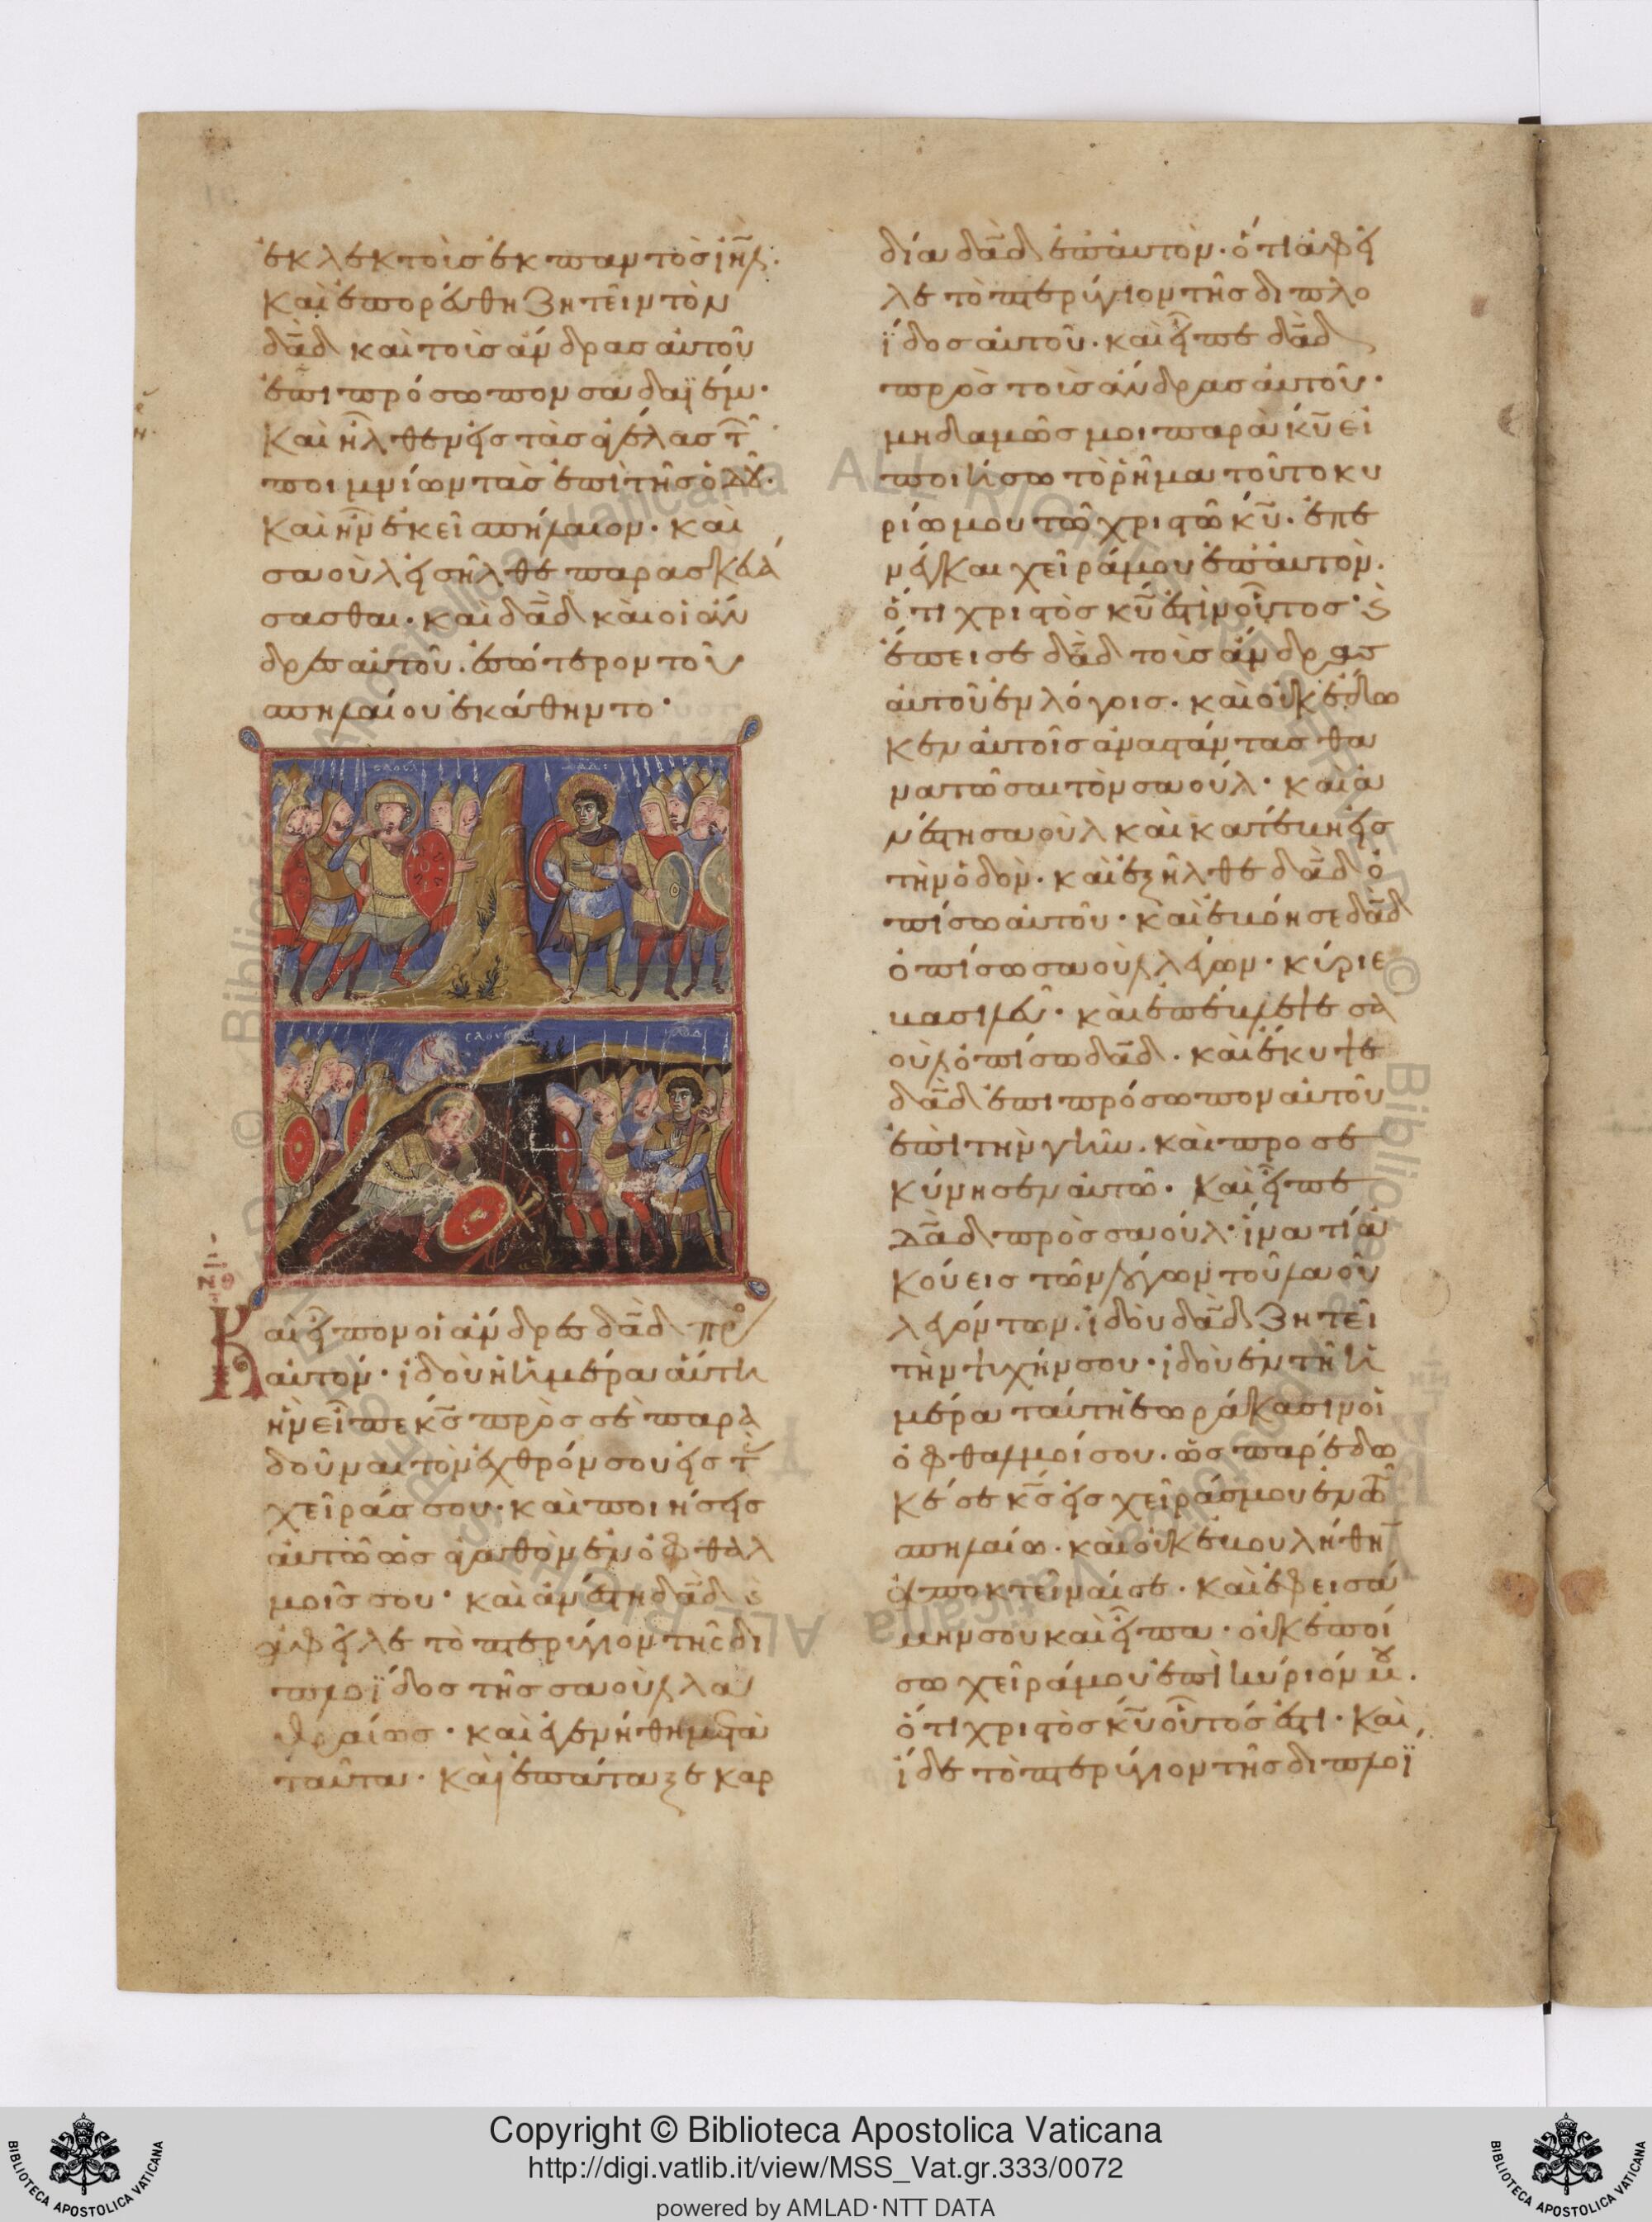 ἐκλεκτοὺς ἐκ παντὸς ιηλ.
καὶ ἐπορεύθη ζητεῖν τὸν
δαδ καὶ τοὺς ἄνδρας αὐτοῦ
ἐπι πρόσωπον σαδαϊέμ·
καὶ ἦλθεν εἰς τὰς ἀγέλας τ
ποιμνίων τὰς ἐπὶ τῆς ὁδοῦ·
καὶ ἦν ἐκεῖ σπήλαιον· καὶ
σαοὺλ εἰσῆλθε παρασκευά
σασθαι· καὶ δαδ καὶ οἱ ἄν
δρες αὐτοῦ. ἐσώτερον τοῦ
σπηλαίου ἐκάθηντο·
σαουλ
δαδ
σαουλ
δαδ
Καὶ εἶπον οἱ ἄνδρες δαδ πρ
αὐτόν· ἰδοὺ ἡ ἡμέρα αὕτη
ἣν εἶπε κς πρὸς σὲ παρα
δοῦναι τὸν ἐχθρόν σου εἰς τ
χεῖράς σου· καὶ ποιήσεις
αὐτῶ ὡς ἀγαθὸν ἐν ὀφθαλ
μοῖς σου· καὶ ἀνέστη δαδ καὶ
ἀφεῖλε τὸ πτερύγιον τῆς δι
πλοΐδος τῆς σαοὺλ λα
θραίως· καὶ ἐγενήθη μετὰ
ταῦτα· καὶ ἐπάταξε καρ
δία δαδ ἐπ' αὐτὸν· ὅτι ἀφεῖ
λε τὸ πτερύγιον τῆς διπλο
ΐδος αὐτοῦ· καὶ εἶπε δαδ
πρὸς τοὺς ἄνδρας αὐτοῦ·
μηδαμῶς μοι παρὰ κυ εἰ
ποιήσω τὸ ῥῆμα τοῦτο κυ
ρίω μου τῶ χριστῶ κυ· ἐπε
νέγκαι χεῖρά μου ἐπ' αὐτὸν.
ὅτι χριστὸς κυ ἐστὶν οὗτος· καὶ
ἔπεισε δαδ τοὺς ἄνδρας
αὐτοῦ ἐν λόγοις· καὶ οὐκ ἔδω
κεν αὐτοῖς ἀναστάντας θα
νατῶσαι τὸν σαούλ· καὶ ἀ
νέστη σαοὺλ καὶ κατέβη εἰς
τὴν ὁδὸν· καὶ ἐξῆλθε δαδ ὀ
πίσω αὐτοῦ· καὶ ἐβόησε δαδ
ὀπίσω σαοὺλ λέγων· κύριε
βασιλεῦ· καὶ ἐπέβλεψε σα
οὺλ ὀπίσω δαδ· καὶ ἔκυψε
δαδ ἐπι πρόσωπον αὐτοῦ
ἐπὶ τὴν γῆν. καὶ προσε
κύνησεν αὐτῶ· καὶ εἶπε
δαδ πρὸς σαούλ· ἵνα τί ἀ
κούεις τῶν λόγων τοῦ λαοῦ
λεγόντων. ἰδοὺ δαδ ζητεῖ
τὴν ψυχήν σου· ἰδοὺ ἐν τῆ ἡ
μέρα ταύτη ἑωράκασιν οἱ
ὀφθαλμοί σου. ὡς παρέδω
κέ σε κς εἰς χεῖράς μου ἐν τῶ
σπηλαίω· καὶ οὐκ ἐβουλήθη
ἀποκτεῖναί σε. καὶ ἐφεισά
μην σου καὶ εἶπα· οὐκ ἐποί
σω χεῖρά μου ἐπὶ κύριόν μου.
ὅτι χριστὸς κυ οὗτός ἐστι· καὶ
ἴδε τὸ πτερύγιον τῆς διπλοΐ
Copyright © Biblioteca Apostolica Vaticana
http://digi.vatlib.it/view/MSS_Vat.gr.333/0072
powered by AMLAD·NTT DATA
BIBLIOTECA APOSTOLICA VATICANA
BIBLIOTECA APOSTOLICA VATICANA